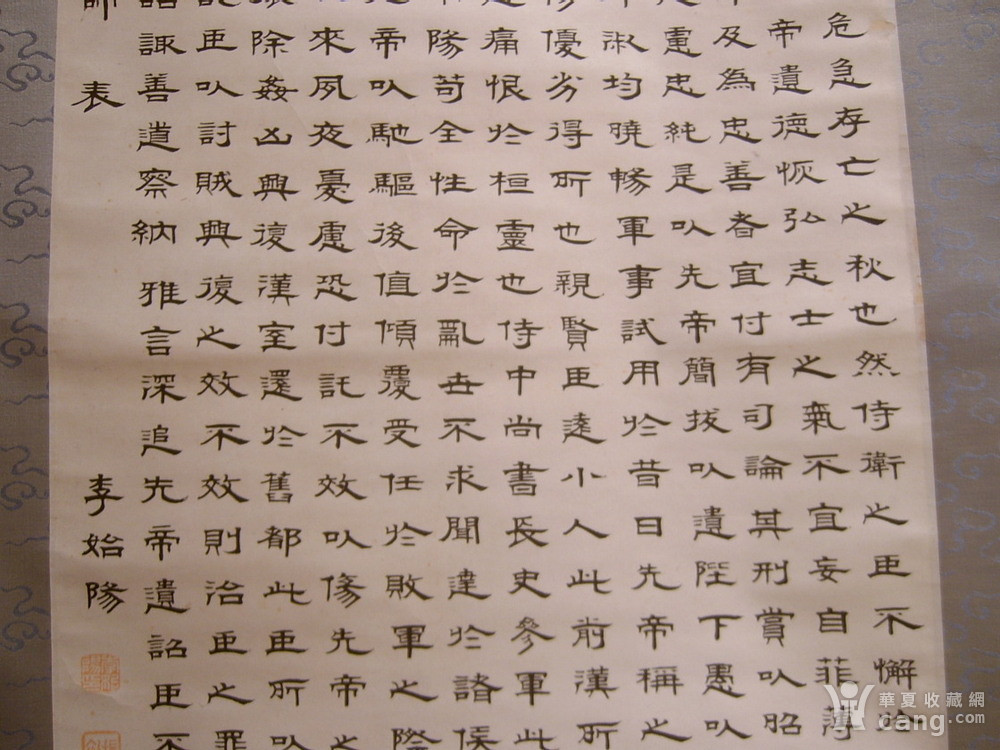 危急存亡之秋也然侍衛之臣不懈於
帝遺德恢弘志士之氣不宜妄自菲薄
及為忠善者宜付有司論其刑賞以昭
慮忠純是以先帝簡拔以遺陛下愚以
淑均曉暢軍事試用於昔日先帝稱之
優劣得所也親賢臣遠小人此前漢所
痛恨於桓靈也侍中尚書長史參軍此
陽苟全性命於亂世不求聞達於諸侯
帝以馳驅後值傾覆受任於敗軍之際
來夙夜憂慮恐付託不效以傷先帝之
除姦凶興復漢室還於舊都此臣所以
臣以討賊興復之效不效則治臣之罪
諮諏善道察納雅言深追先帝遺詔臣不
師表 李始陽
華夏收藏網
cang.com